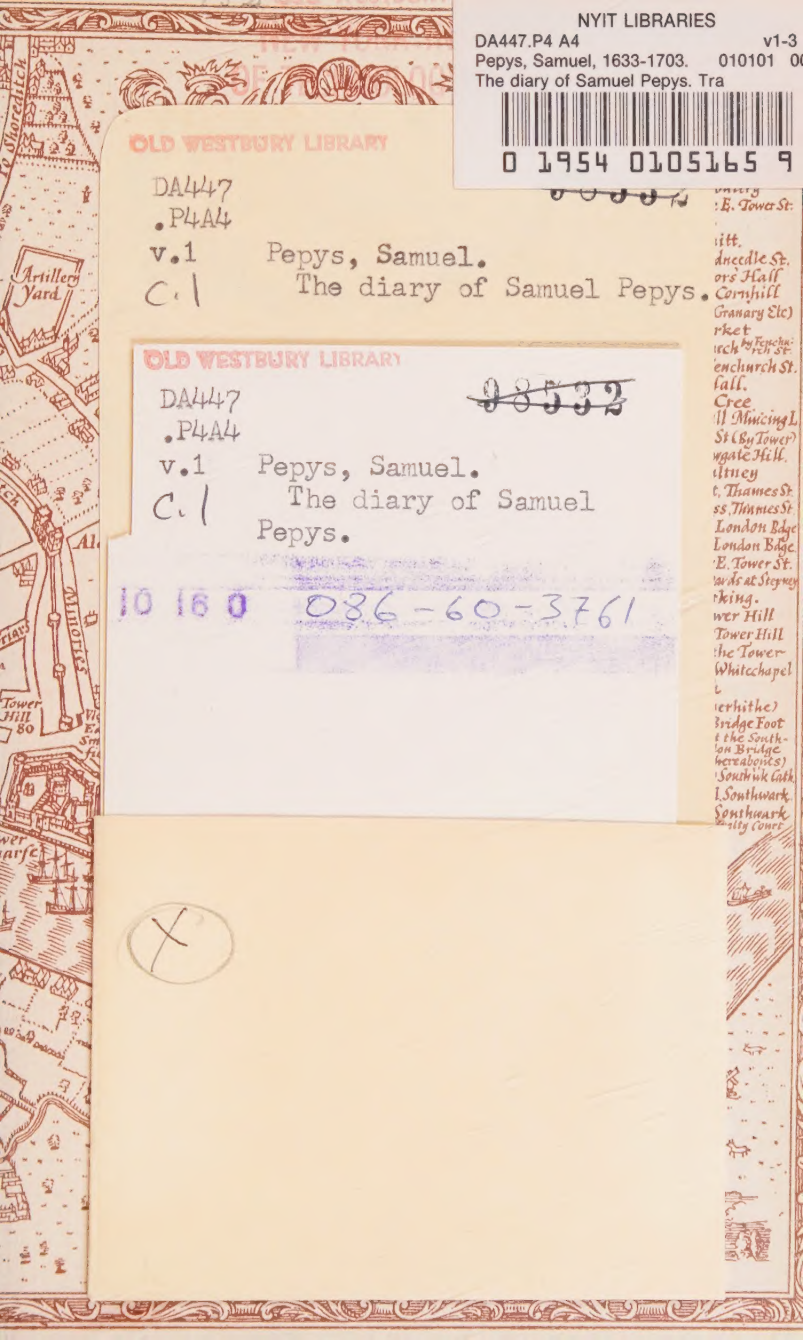 NYIT LIBRARIES
DA447.P4 A4 v1-3
Pepys, Samuel, 1633-1703. 010101
The diary of Samuel Pepys. Tra
0 1954 0105165 9
OLD WESTBURY LIBRARY
DA447
.P4A4
v.1 Pepys, Samuel.
C.1 The diary of Samuel Pepys.
OLD WESTBURY LIBRARY
DA447 98532
.P4A4
v.1 Pepys, Samuel.
C.1 The diary of Samuel
Pepys.
10 16 0 086-60-3761
X
to Shoreditch
Artillery
Yard
Minories
Tower
Hill
80
E. Tower St.
dneedle St.
ors' Hall
Cornhill
Granary Etc)
rket
enchurch St.
Cree
ll Mincing L
St (By Tower)
wgate Hill.
ltney
t, Thames St.
ss, Thames St.
London Bdge
London Bdge
E. Tower St.
ards at Stepney
rking.
wer Hill
Tower Hill
the Tower
Whitechapel
erhithe)
Bridge Foot
t the South-
on Bridge
hereabouts)
Southwk Cath.
l, Southwark
Southwark